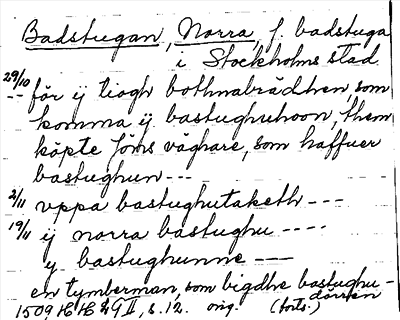 Badstugan, Norra, f. badstuga
i Stockholms stad
29/10 för ij tiogh bothnabrädher, som
-- komma ij bastughuhoon, them
köpte Jöns väghare, som haffuer
bastughun ---
2/11 vppa bastughutaketh ---
19/11 ij norra bastughu ----
y bastughunne ---
en tymberman, som bigdhe bastughu-
dörren
1509 HH 29 II, s. 12. orig. (forts.)